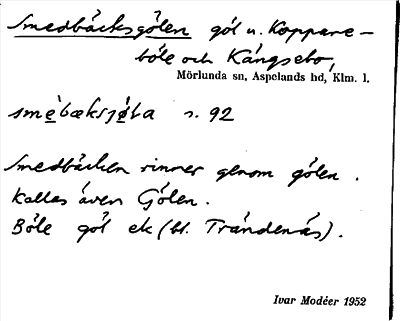 Smedbäcksgölen göl v. Koppare-
böle och Kångsebo,
Mörlunda sn, Aspelands hd, Klm. l.
smèbæksjø̀ła s. 92
Smedbäcken rinner genom gölen.
Kallas även Gölen.
Böle göl ek (bl. Trändenäs).
Ivar Modéer 1952